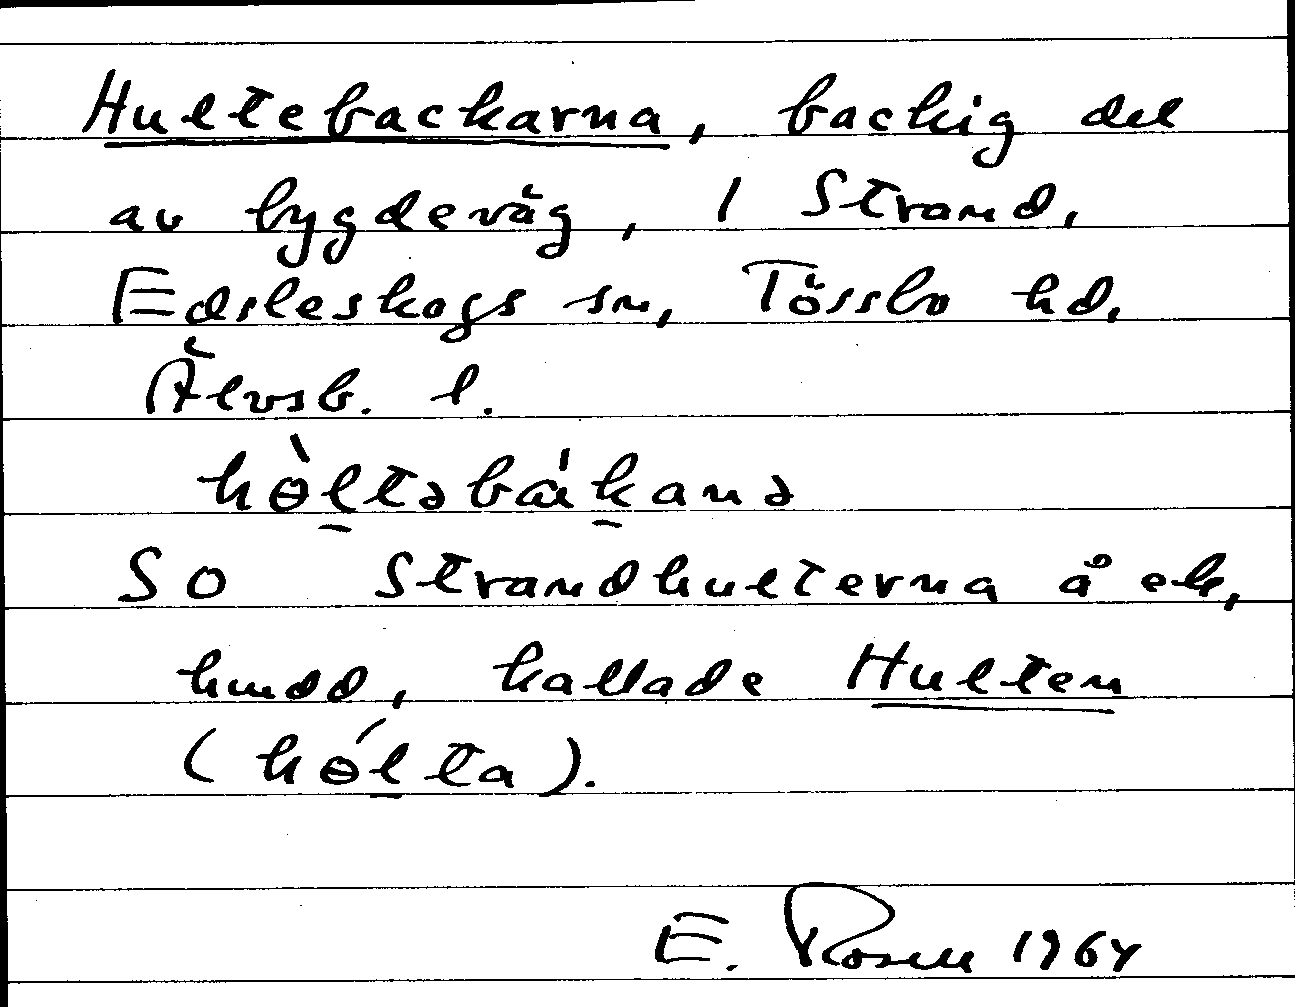 Hultebackarna, backig del
av bygdeväg, 1 Strand,
Edsleskogs sn, Tössbo hd,
Älvsb. l.
hɵ̀l̠təbák̠anə
SO Strandhulterna å ek,
hmdd, kallade Hulten
(hɵ́l̠ta).
E. Rosell 1964